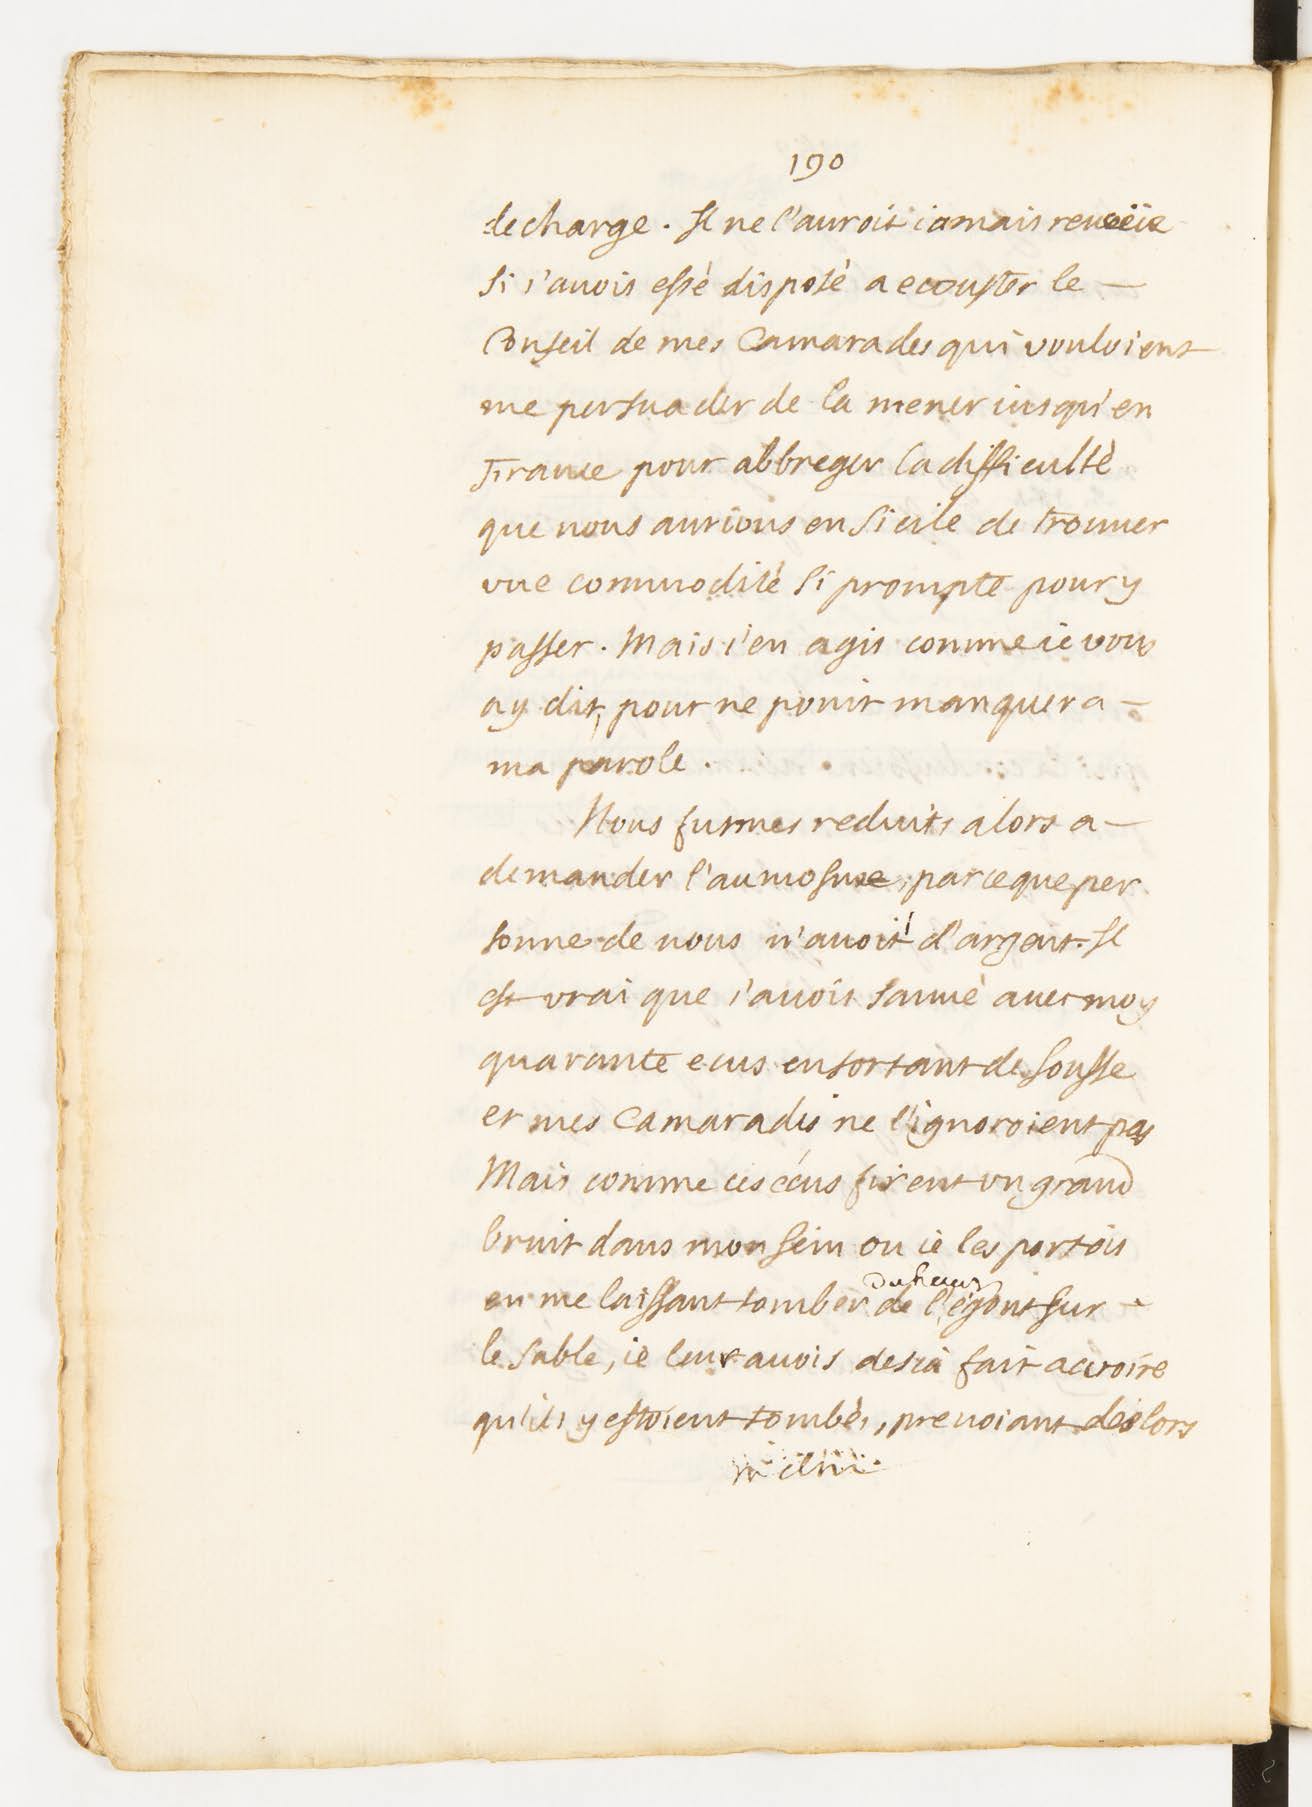 190
decharge. Il ne l'auroit iamais reveüe
si i'avois esté disposé a ecouster le —
Conseil de mes Camarades qui vouloient
me persuader de la mener iusqu'en
France pour abbreger la difficulté
que nous aurions en Sicile de trouver
vne commodité si prompte pour y
passer. Mais i'en agis comme ie vous
ay dit, pour ne point manquer a —
ma parole.
Nous fumes reduits alors a —
demander l'aumosne, parceque per
sonne de nous n'avoit d'argent. Il
est vrai que i'avois sauvé avec moy
quarante ecus en sortant de Sousse
et mes Camarades ne l'ignoroient pas
Mais comme ces écus firent vn grand
bruit dans mon sein ou ie les portois
du haut
en me laissant tomber de l'égout sur —
le sable, ie leur avois desia fait accroire
qu'ils y estoient tombés, prevoiant deslors